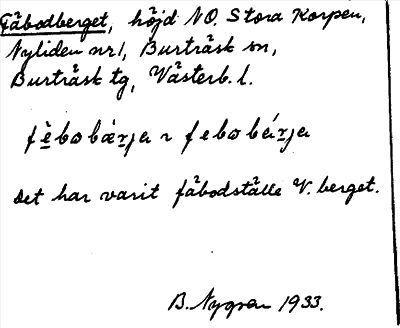 Fäbodberget, höjd NO. Stora Korpen,
Nyliden nr 1, Burträsk sn,
Burträsk tg, Västerb. l.
fèbobæ̀rja ~ febobárja
det har varit fäbodställe V. berget.
B. Nygren 1933.